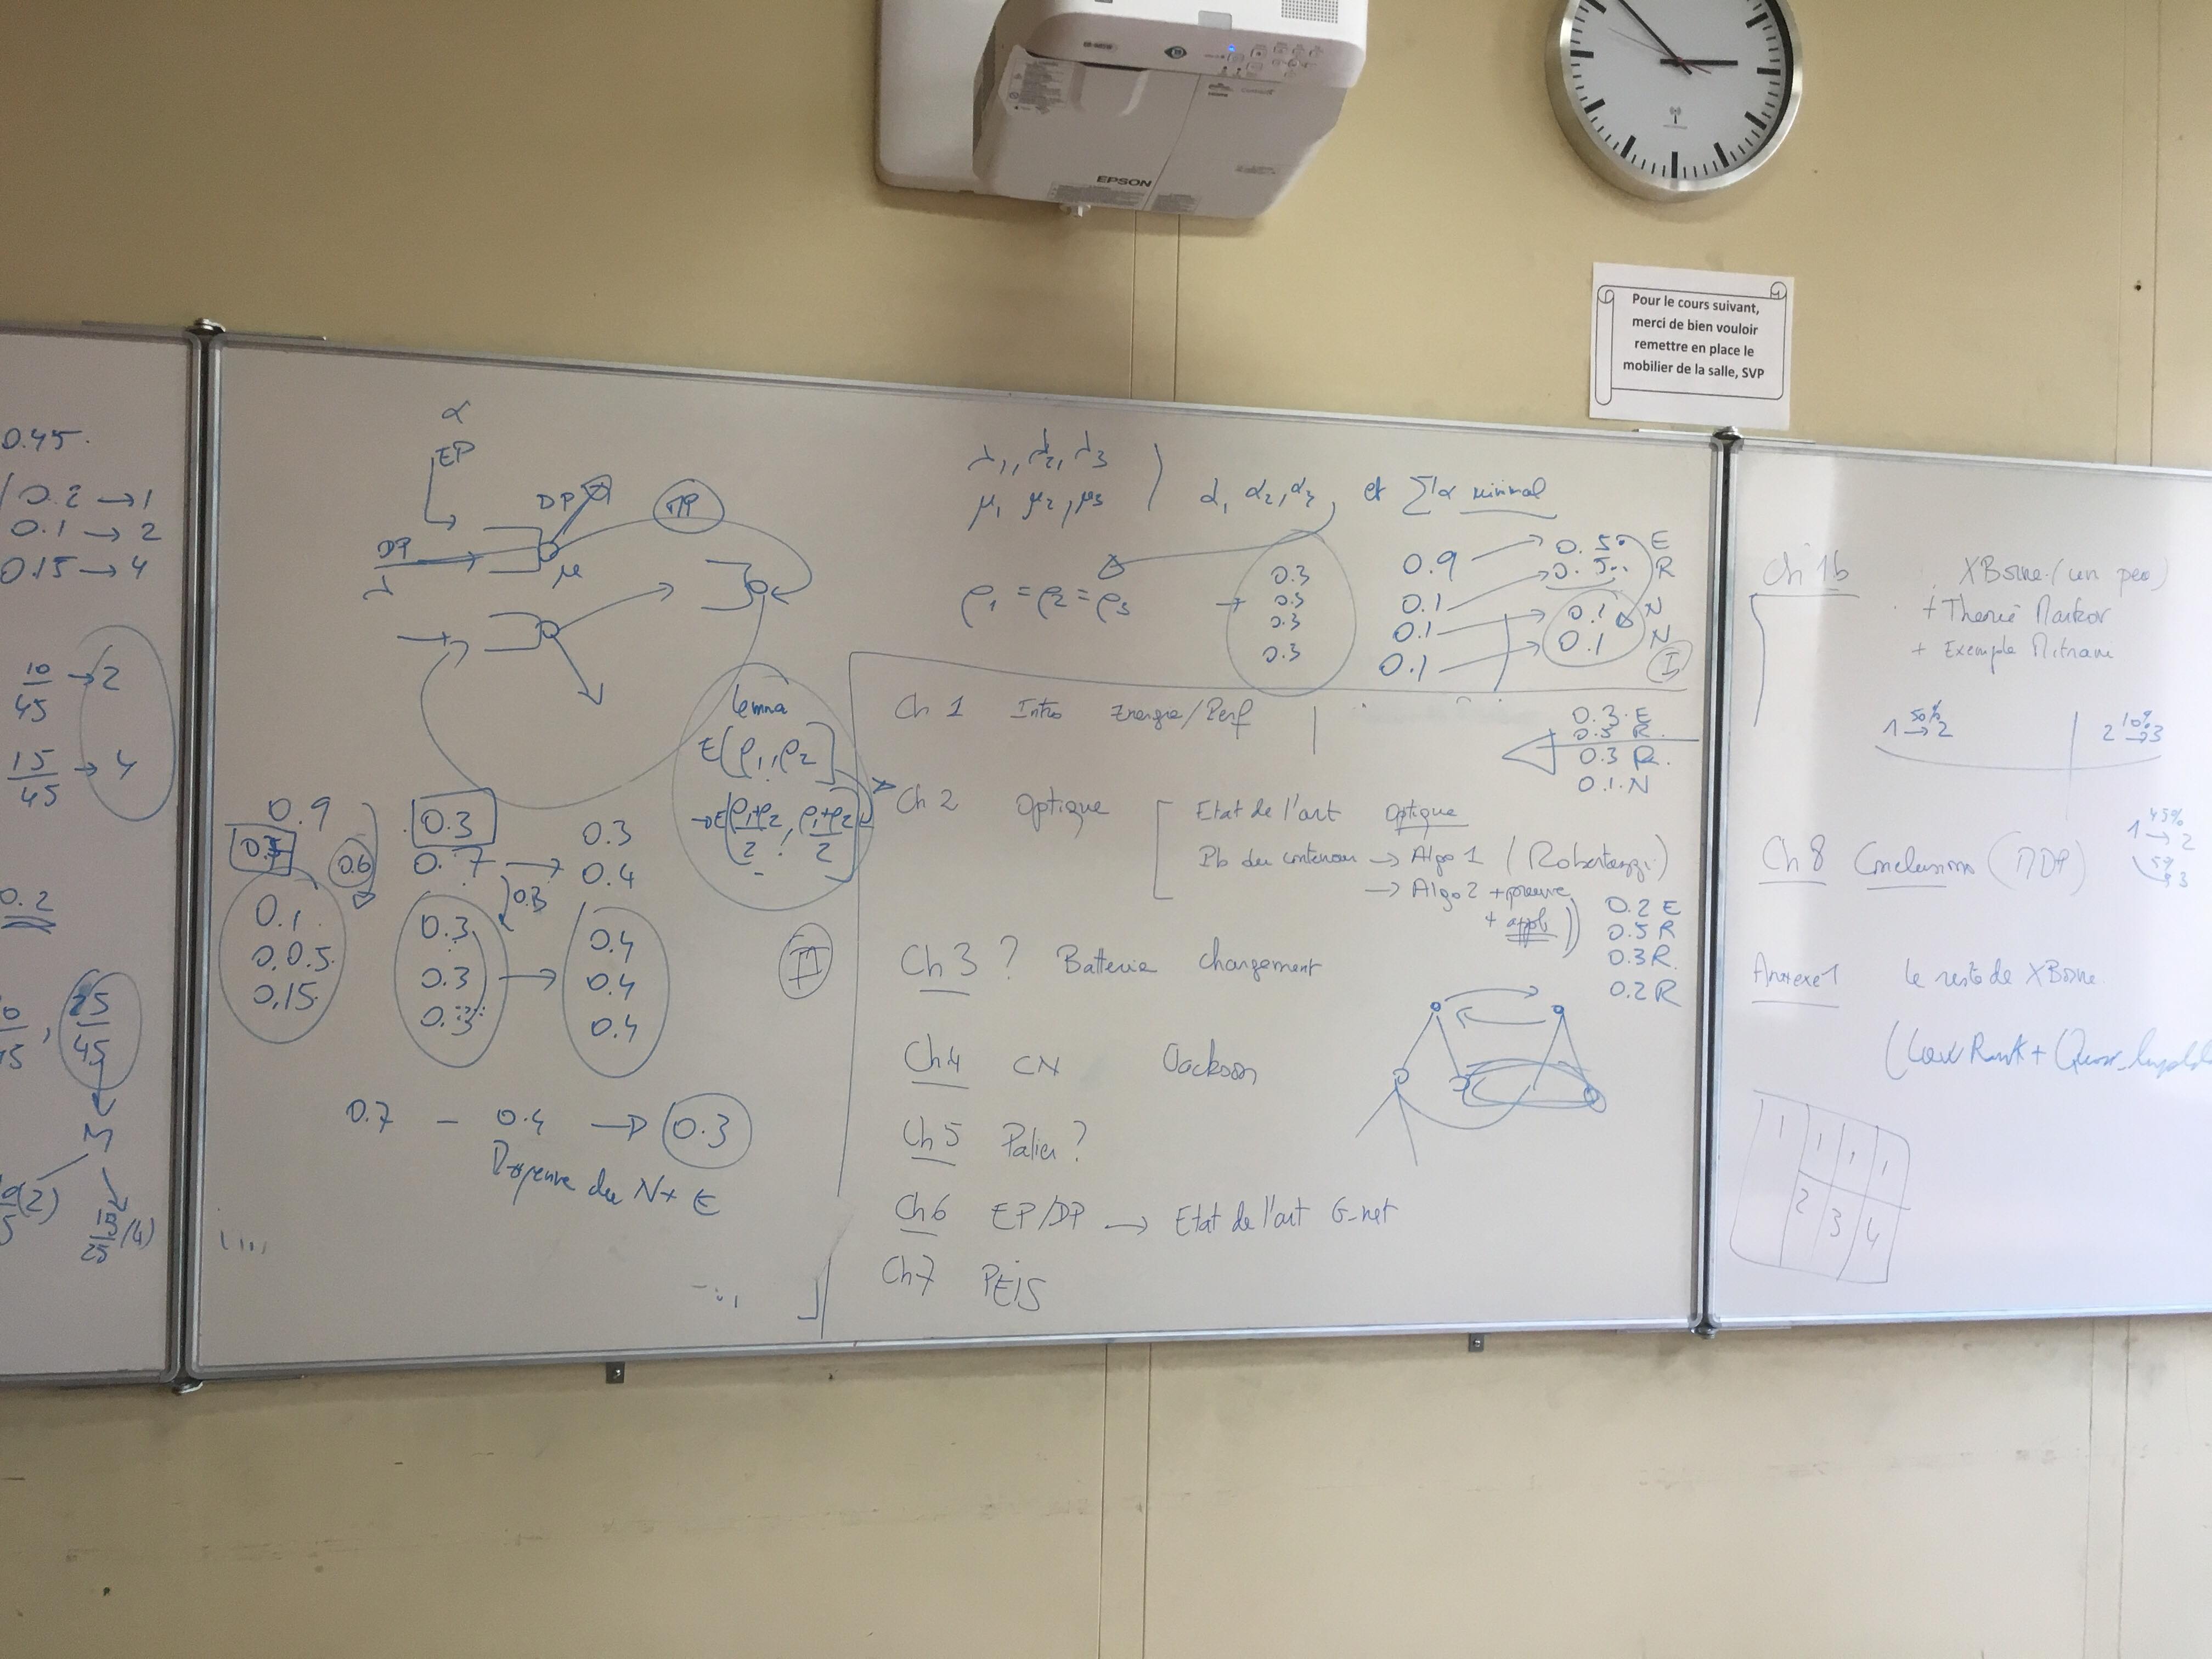 EPSON
Pour le cours suivant,
merci de bien vouloir
remettre en place le
mobilier de la salle, SVP
0.45.
0.2 → 1
0.1 → 2
0.15 → 4
10/45 → 2
15/45 → 4
0.2
25/45
3
α
EP
DP
DP
λ
μ
0.9
0.6
0.1
0.05
0.15
0.3
0.7 →
0.3
0.3
0.3
0.3
0.3
0.4
0.4
0.4
0.4
0.7 - 0.4 → 0.3
N + E
Lemna
E[ρ1, ρ2]
→ E[ρ1+ρ2/2, ρ1+ρ2/2]
II
λ1, λ2, λ3
μ1 μ2, μ3
α1 α2, α3, et Σα minimal
ρ1 = ρ2 = ρ3
→
0.3
0.3
0.3
0.3
0.9 → 0.5 E
0.1 → 0.5 R
0.1 → 0.1 N
0.1 → 0.1 N
I
Ch 1 Intro Energie/Perf
0.3 E
0.3 R
0.3 R.
0.1 N
Ch 2 Optique
Etat de l'art Optique
Pb du conteneur → Algo 1 (Robertazzi)
→ Algo 2 + preuve
+ appli
0.2 E
0.5 R
0.3 R
0.2 R
Ch 3 ? Batterie changement
Ch 4 CN Jackson
Ch 5 Palier ?
Ch 6 EP/DP → Etat de l'art G-net
Ch 7 PEIS
Ch 1b XBorne (un peu)
+ Theorie Markov
+ Exemple Mitrani
1 50% → 2
2 10% → 3
45%
1 → 2
5%
3
Ch 8 Conclusions (MDP)
Annexe 1 le reste de XBorne
(Low Rank +
1 1 1 1
2 3 4